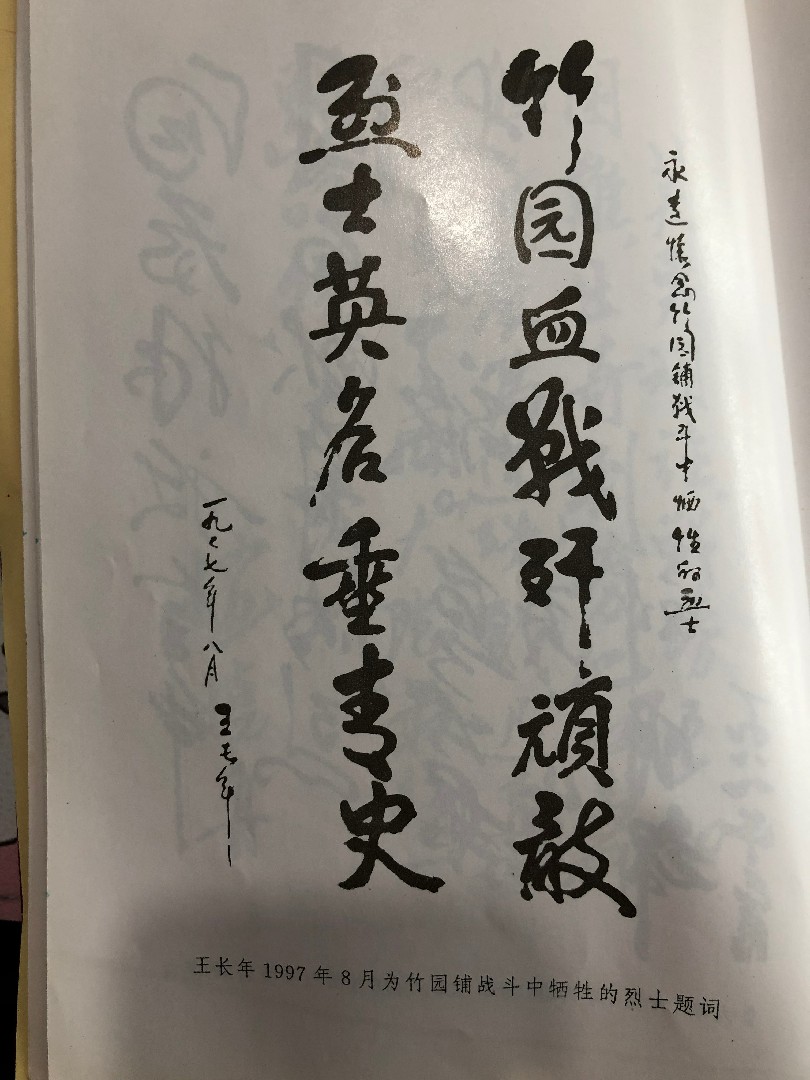 永远怀念竹园铺战斗中牺牲的烈士
竹园血戰歼頑敵
烈士英名垂青史
一九九七年八月 王长年
王长年1997年8月为竹园铺战斗中牺牲的烈士题词